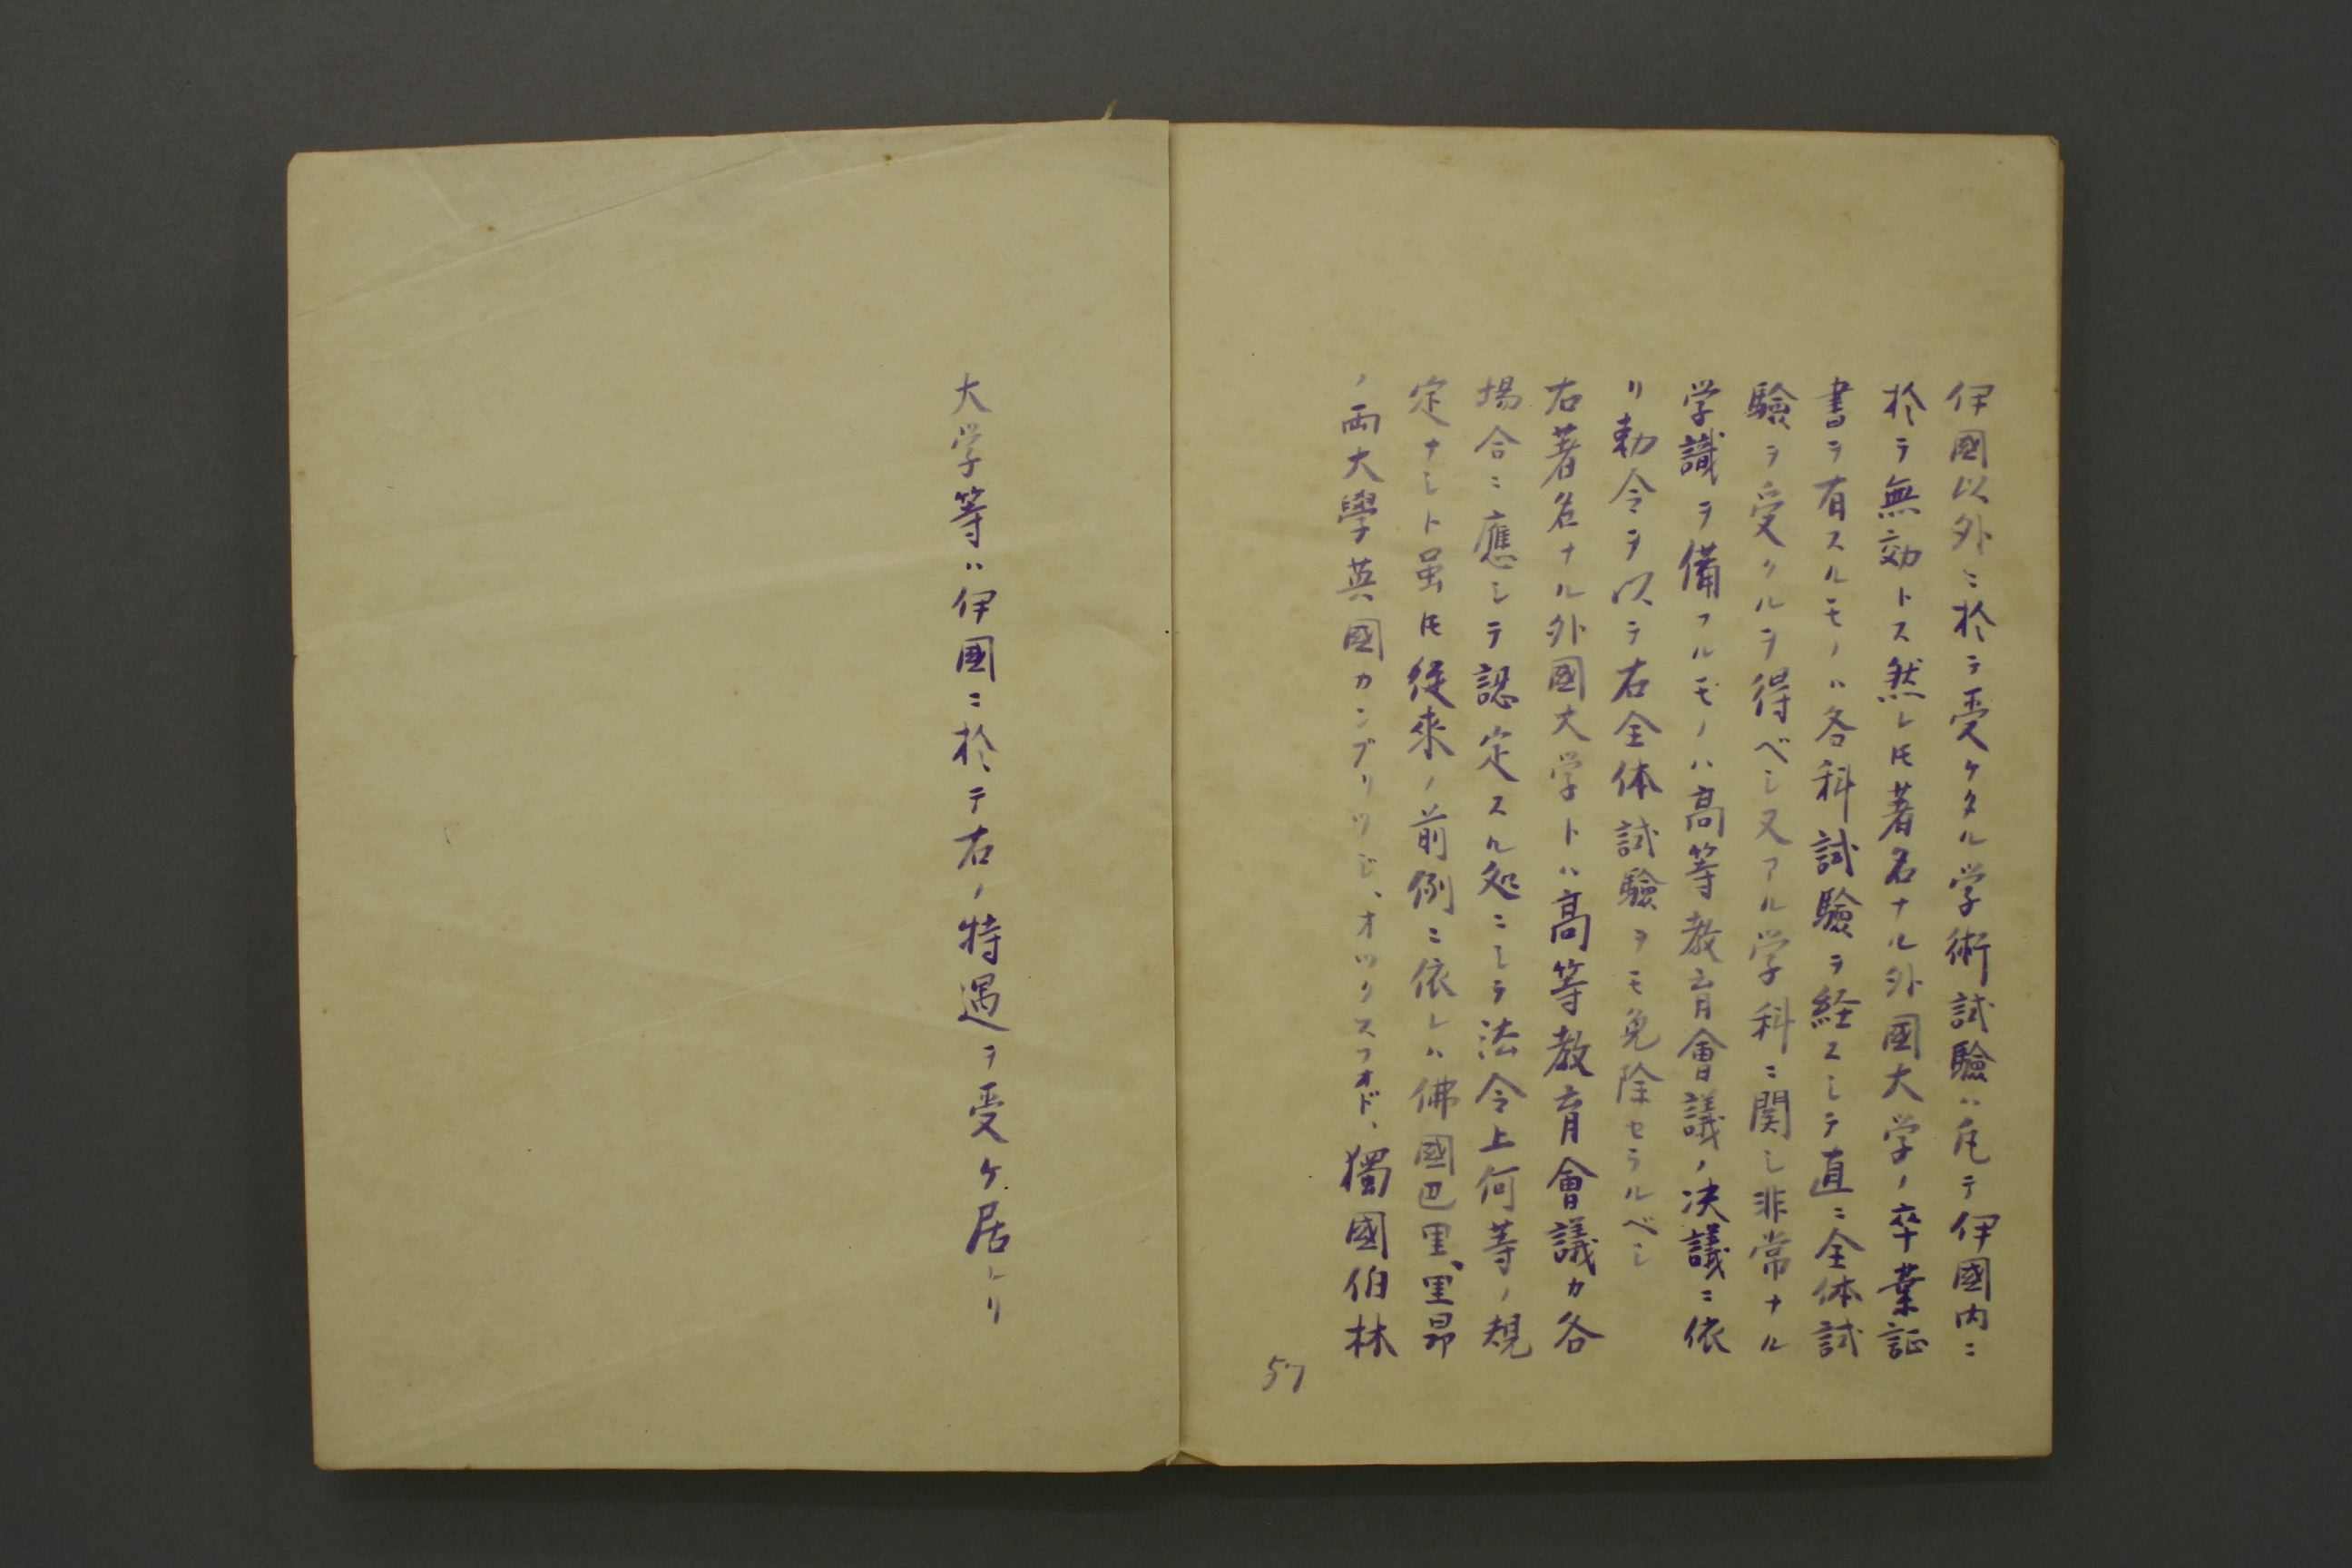 伊國以外ニ於テ受ケタル学術試驗ハ凡テ伊國内ニ
於テ無効トス然レ𪜈著名ナル外國大学ノ卒業証
書ヲ有スルモノハ各科試驗ヲ経スシテ直ニ全体試
驗ヲ受クルヲ得ベシ又アル学科ニ関シ非常ナル
学識ヲ備フルモノハ高等教育會議ノ決議ニ依
リ勅令ヲ以テ右全体試驗ヲモ免除セラルベシ
右著名ナル外國大学トハ高等教育會議カ各
場合ニ應シテ認定スル処ニシテ法令上何等ノ規
定ナシト虽𪜈從來ノ前例ニ依レハ佛國巴里、里昂
ノ両大學英國カンブリツジ、オツクスフオド、獨國伯林
57
大学等ハ伊國ニ於テ右ノ特遇ヲ受ケ居レリ